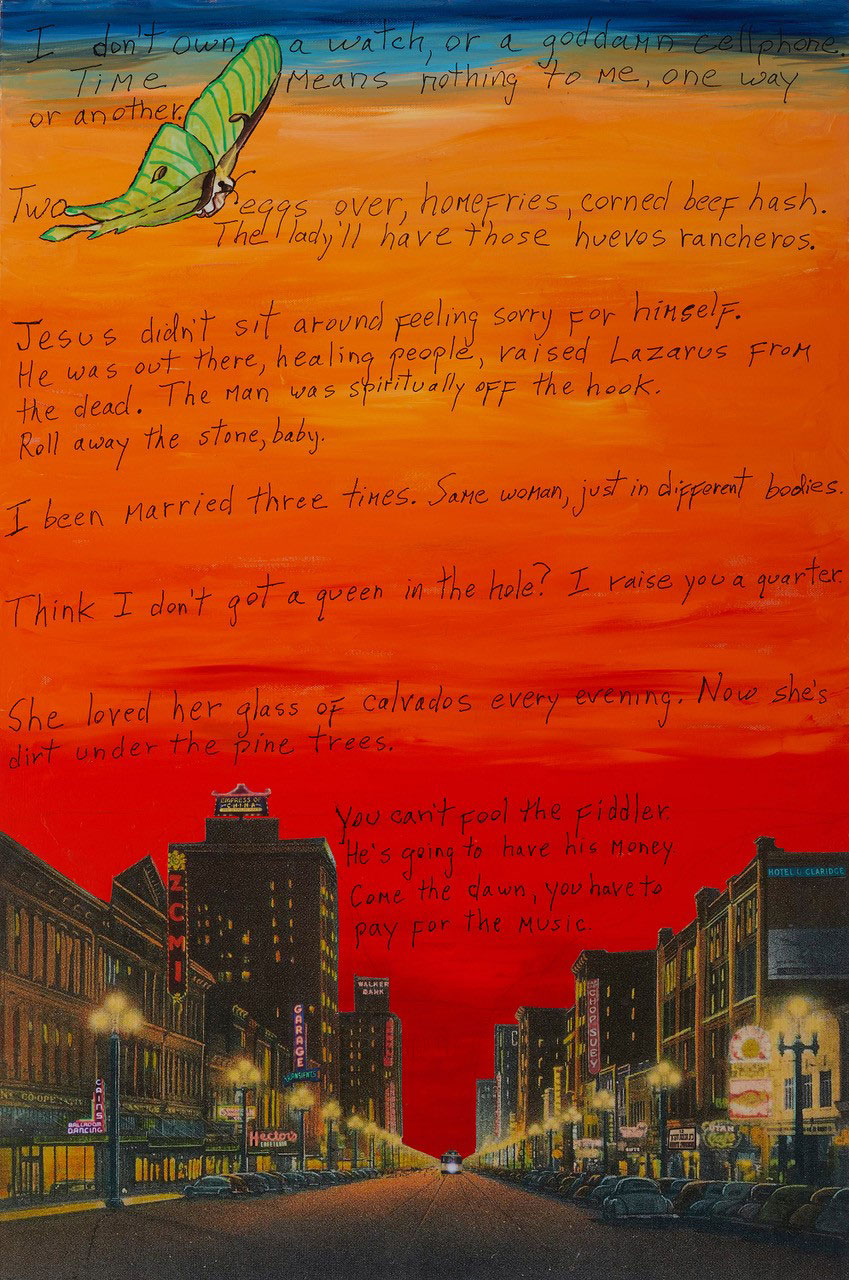 I don't own a watch, or a goddamn cellphone.
Time means nothing to me, one way
or another.
Two eggs over, homefries, corned beef hash.
The lady'll have those huevos rancheros.
Jesus didn't sit around feeling sorry for himself.
He was out there, healing people, raised Lazarus from
the dead. The man was spiritually off the hook.
Roll away the stone, baby.
I been married three times. Same woman, just in different bodies.
Think I don't got a queen in the hole? I raise you a quarter.
She loved her glass of calvados every evening. Now she's
dirt under the pine trees.
You can't fool the fiddler.
He's going to have his money
Come the dawn, you have to
pay for the music.
EMPRESS OF
CHINA
ZCMI
HOTEL CLARIDGE
WALKER
BANK
GARAGE
CHOP SUEY
CAINS
BALLROOM
DANCING
Hector's